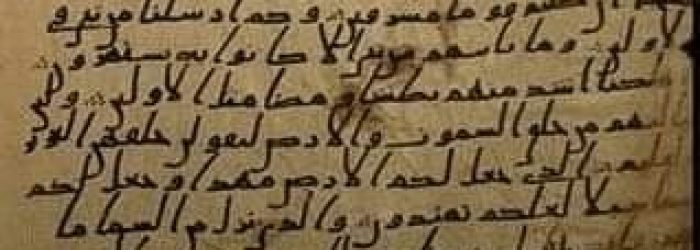 كنتم قوما مسرفين وكم ارسلنا من نبي في
الاولين وما ياتيهم من نبي الا كانوا به يستهزون
فاهلكنا اشد منهم بطشا ومضى مثل الاولين ولئن
سالتهم من خلق السموت والارض ليقولن خلقهن العز
العليم الذي جعل لكم الارض مهدا وجعل لكم
فيها سبلا لعلكم تهتدون والذي نزل من السما ما